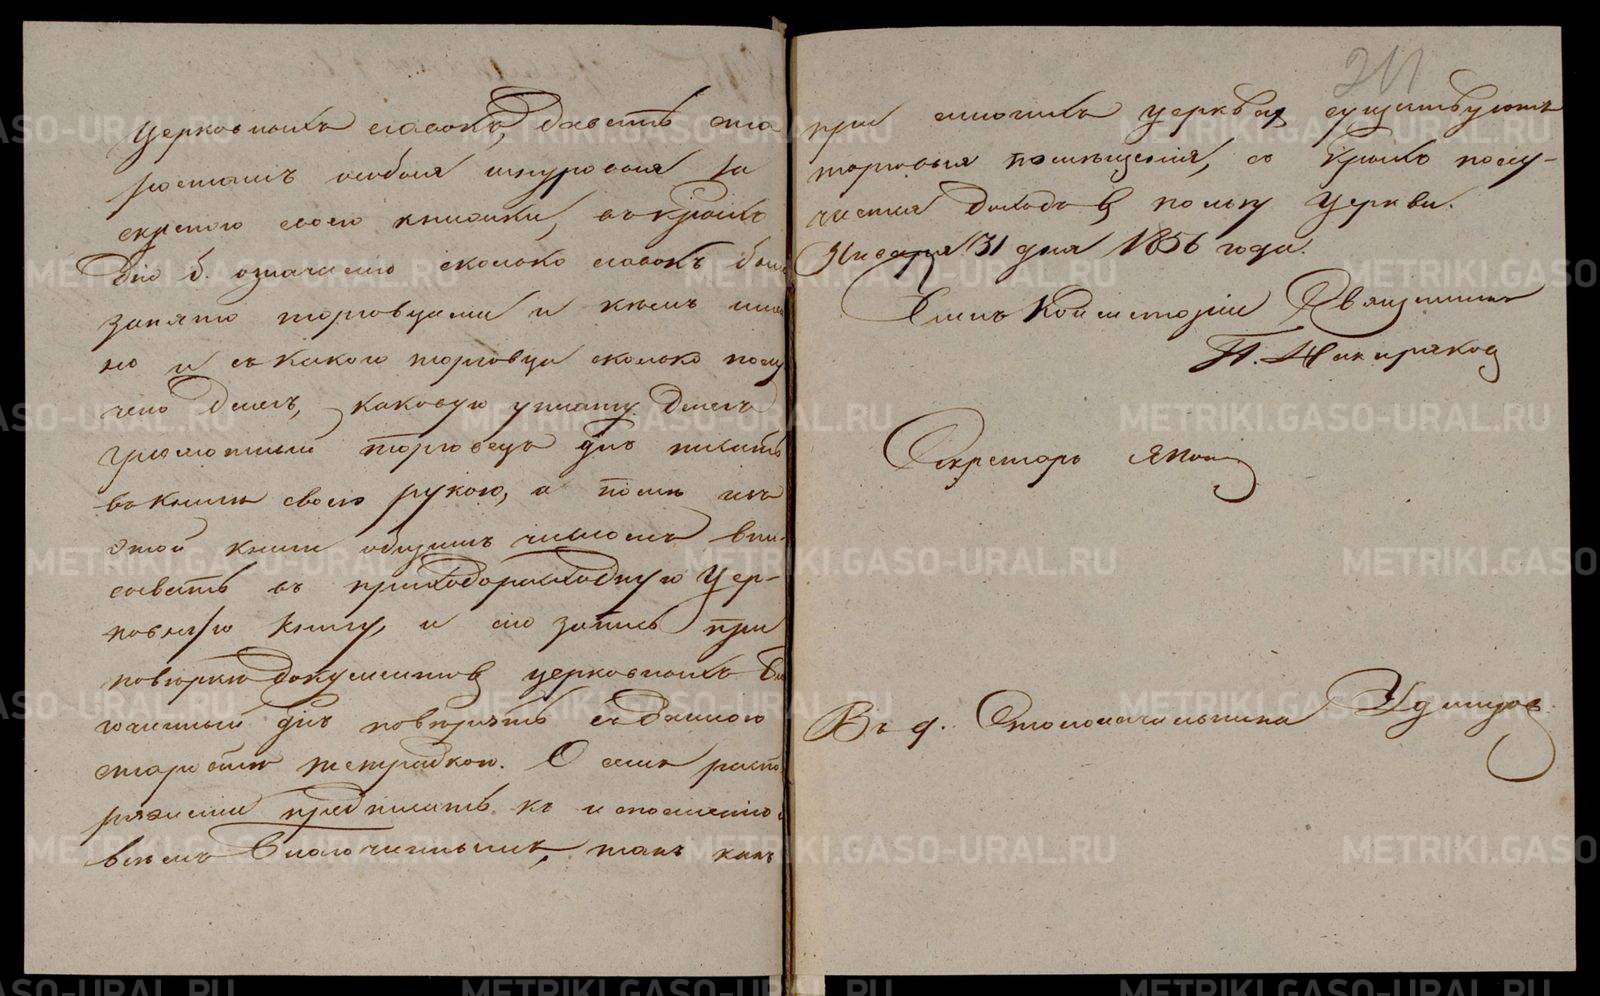 церковныхъ лавокъ, давать ста
ростамъ особыя шнуровыя за
скрепою своею книжки, въ которыхъ
бы б. означено сколько лавокъ было
занято торговцами и кѣмъ имян
но и съ какого торговца сколько полу
чено денегъ, каковую уплату денегъ
грамотный торговецъ д҃нъ писать
въ книгѣ своею рукою, а послѣ изъ
этой книги общимъ числомъ впи-
сывать въ приходорасходную Цер-
ковную книгу, и сію запись при
повѣркѣ документовъ церковныхъ Бла
гочинный д҃нъ повѣрять съ данною
старостѣ тетрадкою. О семъ распо
ряженіи предписать къ исполненію
всѣмъ Благочиннымъ, такъ какъ
211
при многихъ церквахъ существуютъ
торговыя помѣщенія, съ коихъ полу-
чается доходъ въ пользу Церкви.
Января 31 дня 1856 года.
Членъ Консисторіи Священникъ
Секретарь
Въ д. Столоначальника Удинцовъ
METRIKI.GASO-URAL.RU